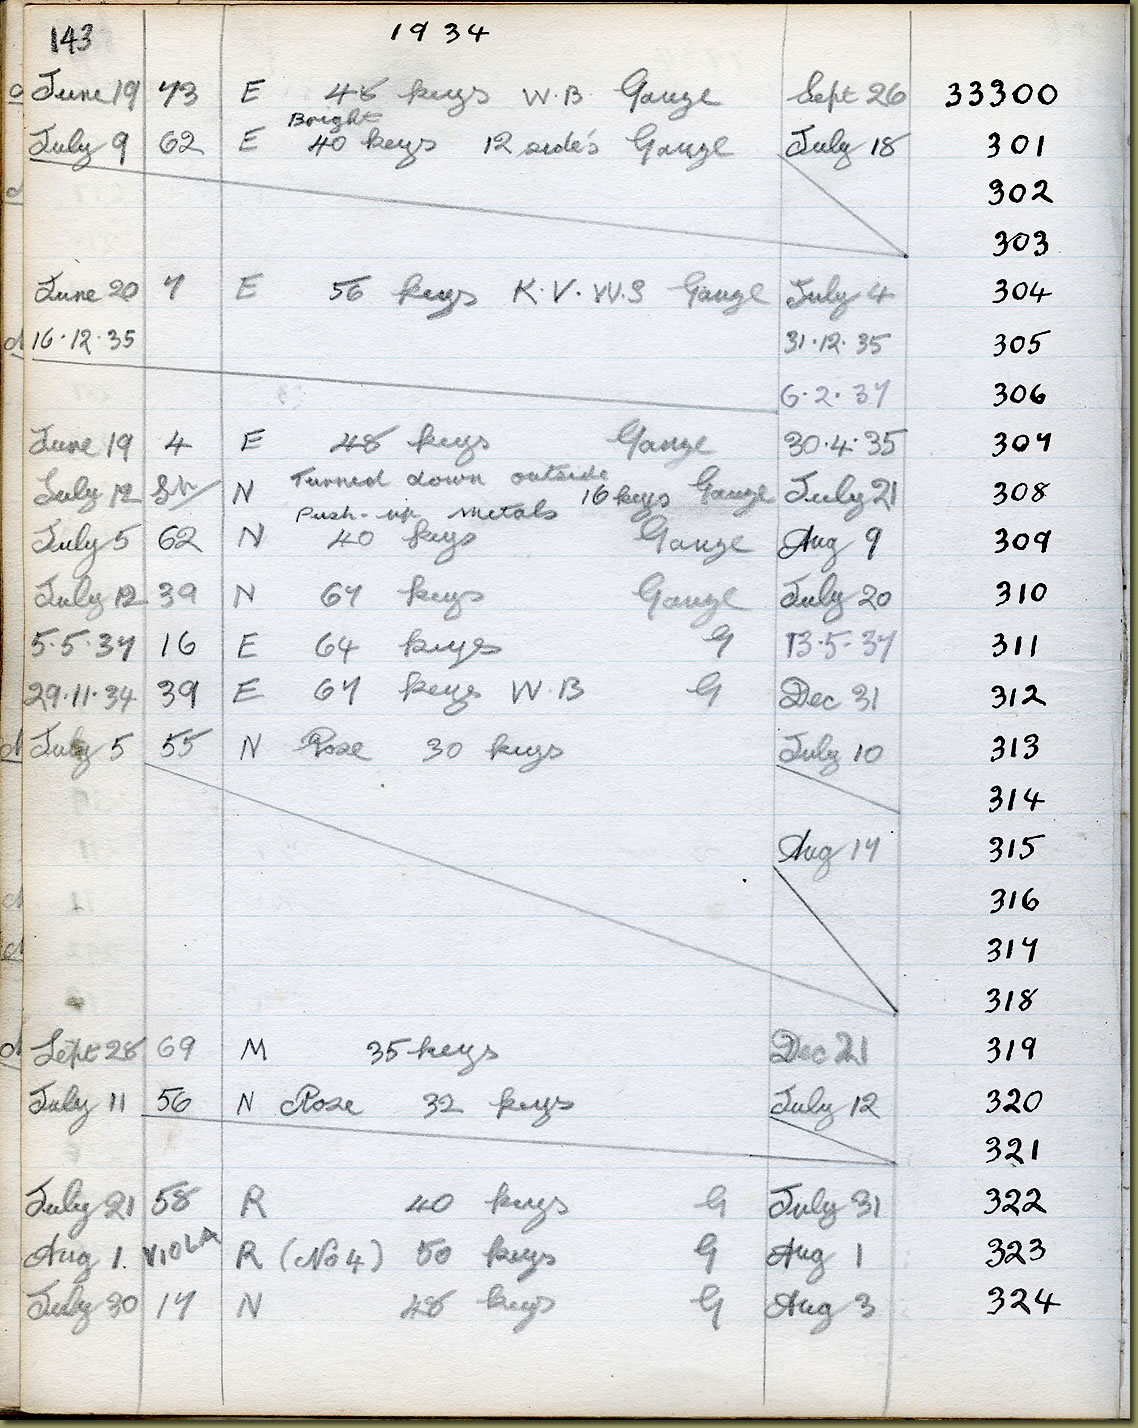 143 1934
June 19 73 E 48 keys W.B. Gauze Sept 26 33300
Bright
July 9 62 E 40 keys 12 side's Gauze July 18 301
302
303
June 20 7 E 56 keys K.V.W.S Gauze July 4 304
16.12.35 31.12.35 305
6.2.37 306
June 19 4 E 48 keys Gauze 30.4.35 307
Turned down outside
July 12 N 16 keys Gauze July 21 308
Push-up metals
July 5 62 N 40 keys Gauze Aug 9 309
July 12 39 N 67 keys Gauze July 20 310
5.5.37 16 E 64 keys G 13.5.37 311
29.11.34 39 E 67 keys W.B G Dec 31 312
July 5 55 N Rose 30 keys July 10 313
314
Aug 17 315
316
317
318
Sept 28 69 M 35 keys Dec 21 319
July 11 56 N Rose 32 keys July 12 320
321
July 21 58 R 40 keys G July 31 322
Aug 1. VIOLA R (No 4) 50 keys G Aug 1 323
July 30 17 N 48 keys G Aug 3 324